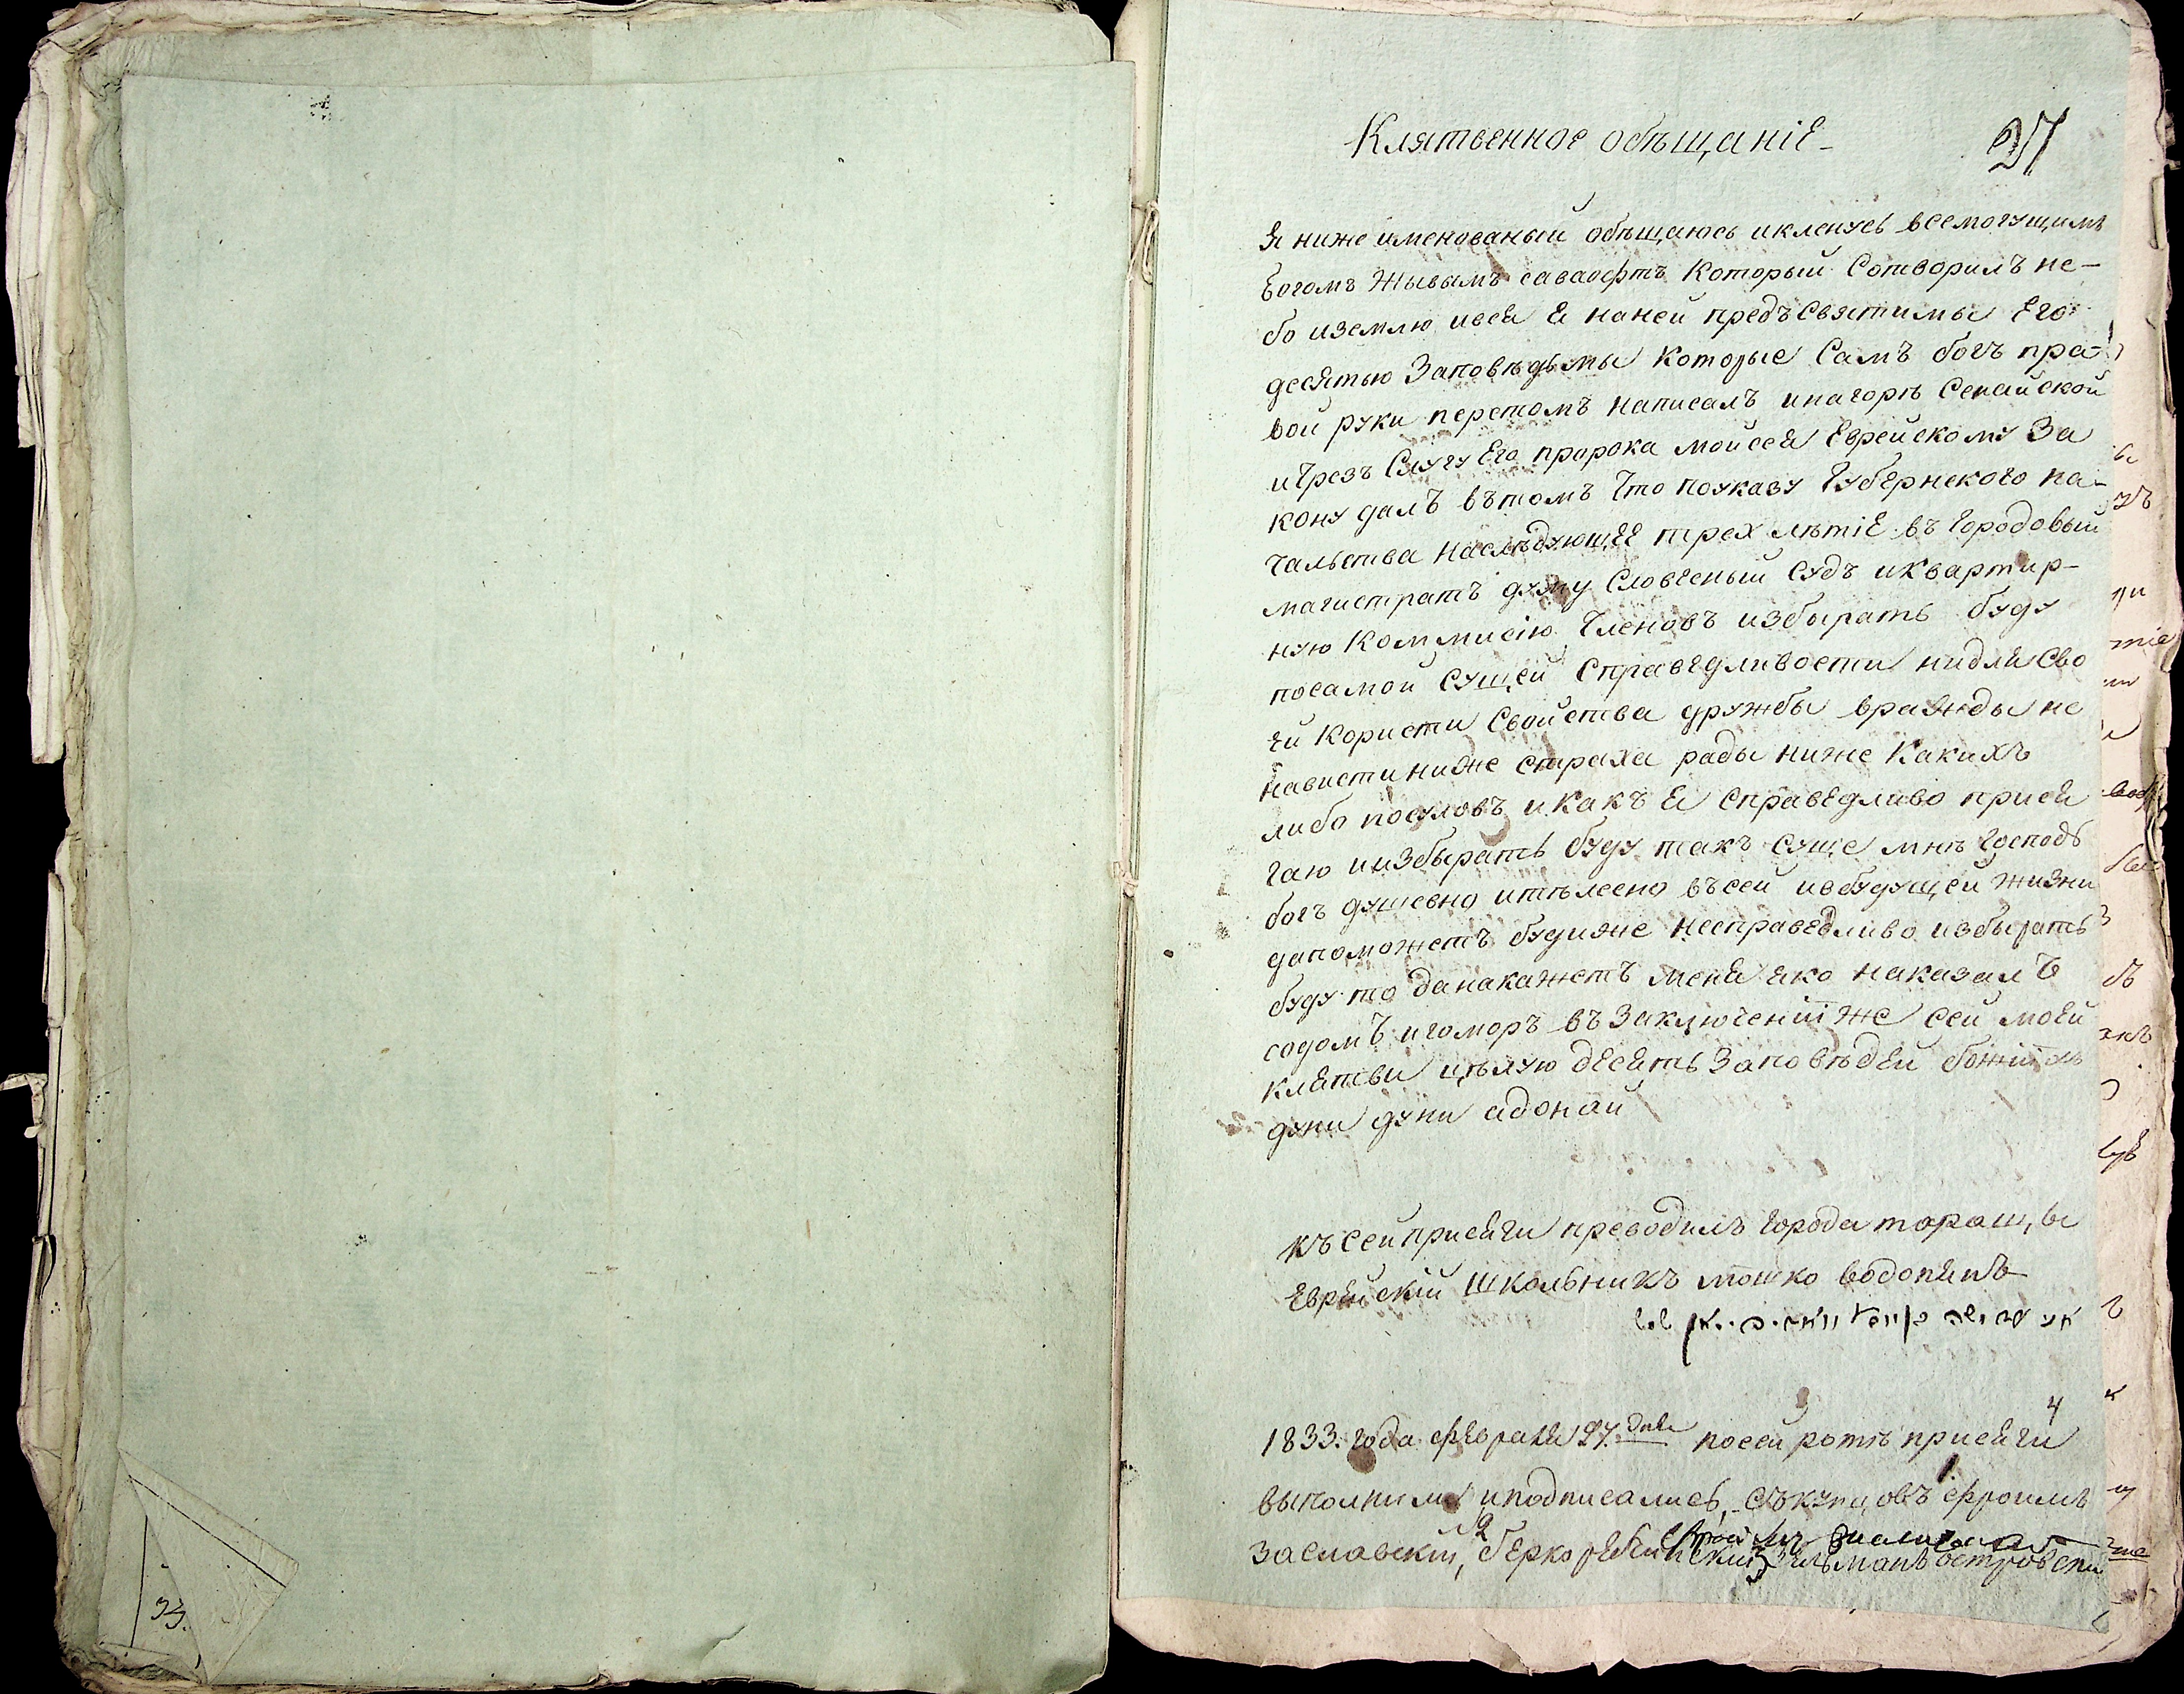 Клятвенное обѣщаніе
27
Я ниже именованый обѣщаюсь икленусь всемогущимъ
богомъ Живымъ саваофтъ Который Сотворилъ не-
бо иземлю ився Я наней предъ Святимы Его
десятью Заповѣдьмы Которые Самъ богъ пра-
вой руки перстомъ написалъ инагорѣ Сенайской
иЧрезъ Слугу Его пророка мойсея Еврейскому За
кону далъ вътомъ Что поуказу Губернского на-
чальства наслѣдующее трех лѣтіе въ Городовый
магистратъ думу Словесный Судъ иквартир-
ную Коммисію Членовъ избырать буду
посамой Сущей Справедливости нидля Сво
ей Користи Свойства дружбы вражды не
нависти ниже страха рады ниже Какихъ
либо посуловъ иКакъ Я Справедливо прися
гаю иизбырать буду такъ Суще мнѣ Господь
богъ душевно итѣлесно въсей ивбудущей жизни
дапоможетъ будиже несправедливо избырать
буду то данакажетъ меня яко наказалъ
содомъ игоморъ въЗаключеніи же сей моей
клятвы цѣлую десять Заповѣдей божіихъ
дуни дуни адонай
Къ Сей присяги преводилъ города таращы
Еврейскій школьникъ мошко водопянъ
1833. года февраля 27. дня посей ротѣ присяги
4
выполнили иподписались, Съ купцовъ фроимъ
Заславскій, 2 берко ребчинскій 3 Зельманъ островски
33.